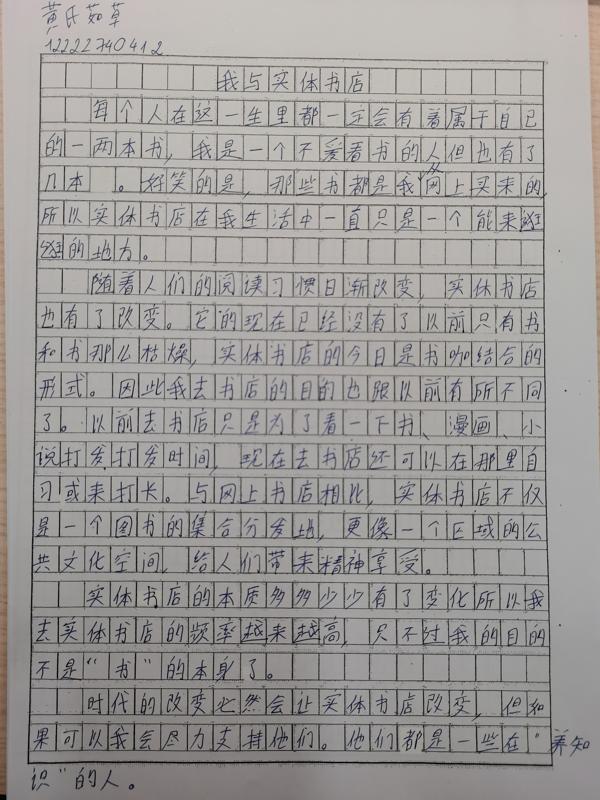 黄氏茹草
12222740412
我与实体书店
每个人在这一生里都一定会有着属于自己
的一两本书，我是一个不爱看书的人但也有了
几本。好笑的是，那些书都是我从网上买来的，
所以实体书店在我生活中一直只是一个能来逛
逛的地方。
随着人们的阅读习惯日渐改变，实体书店
也有了改变。它的现在已经没有了以前只有书
和书那么枯燥，实体书店的今日是书咖结合的
形式。因此我去书店的目的也跟以前有所不同
了。以前去书店只是为了看一下书、漫画、小
说打发打发时间，现在去书店还可以在那里自
习或来打卡。与网上书店相比，实体书店不仅
是一个图书的集合分发地，更像一个区域的公
共文化空间，给人们带来精神享受。
实体书店的本质多多少少有了变化所以我
去实体书店的频率越来越高，只不过我的目的
不是“书”的本身了。
时代的改变必然会让实体书店改变，但如
果可以我会尽力支持他们。他们都是一些在“养知
识”的人。